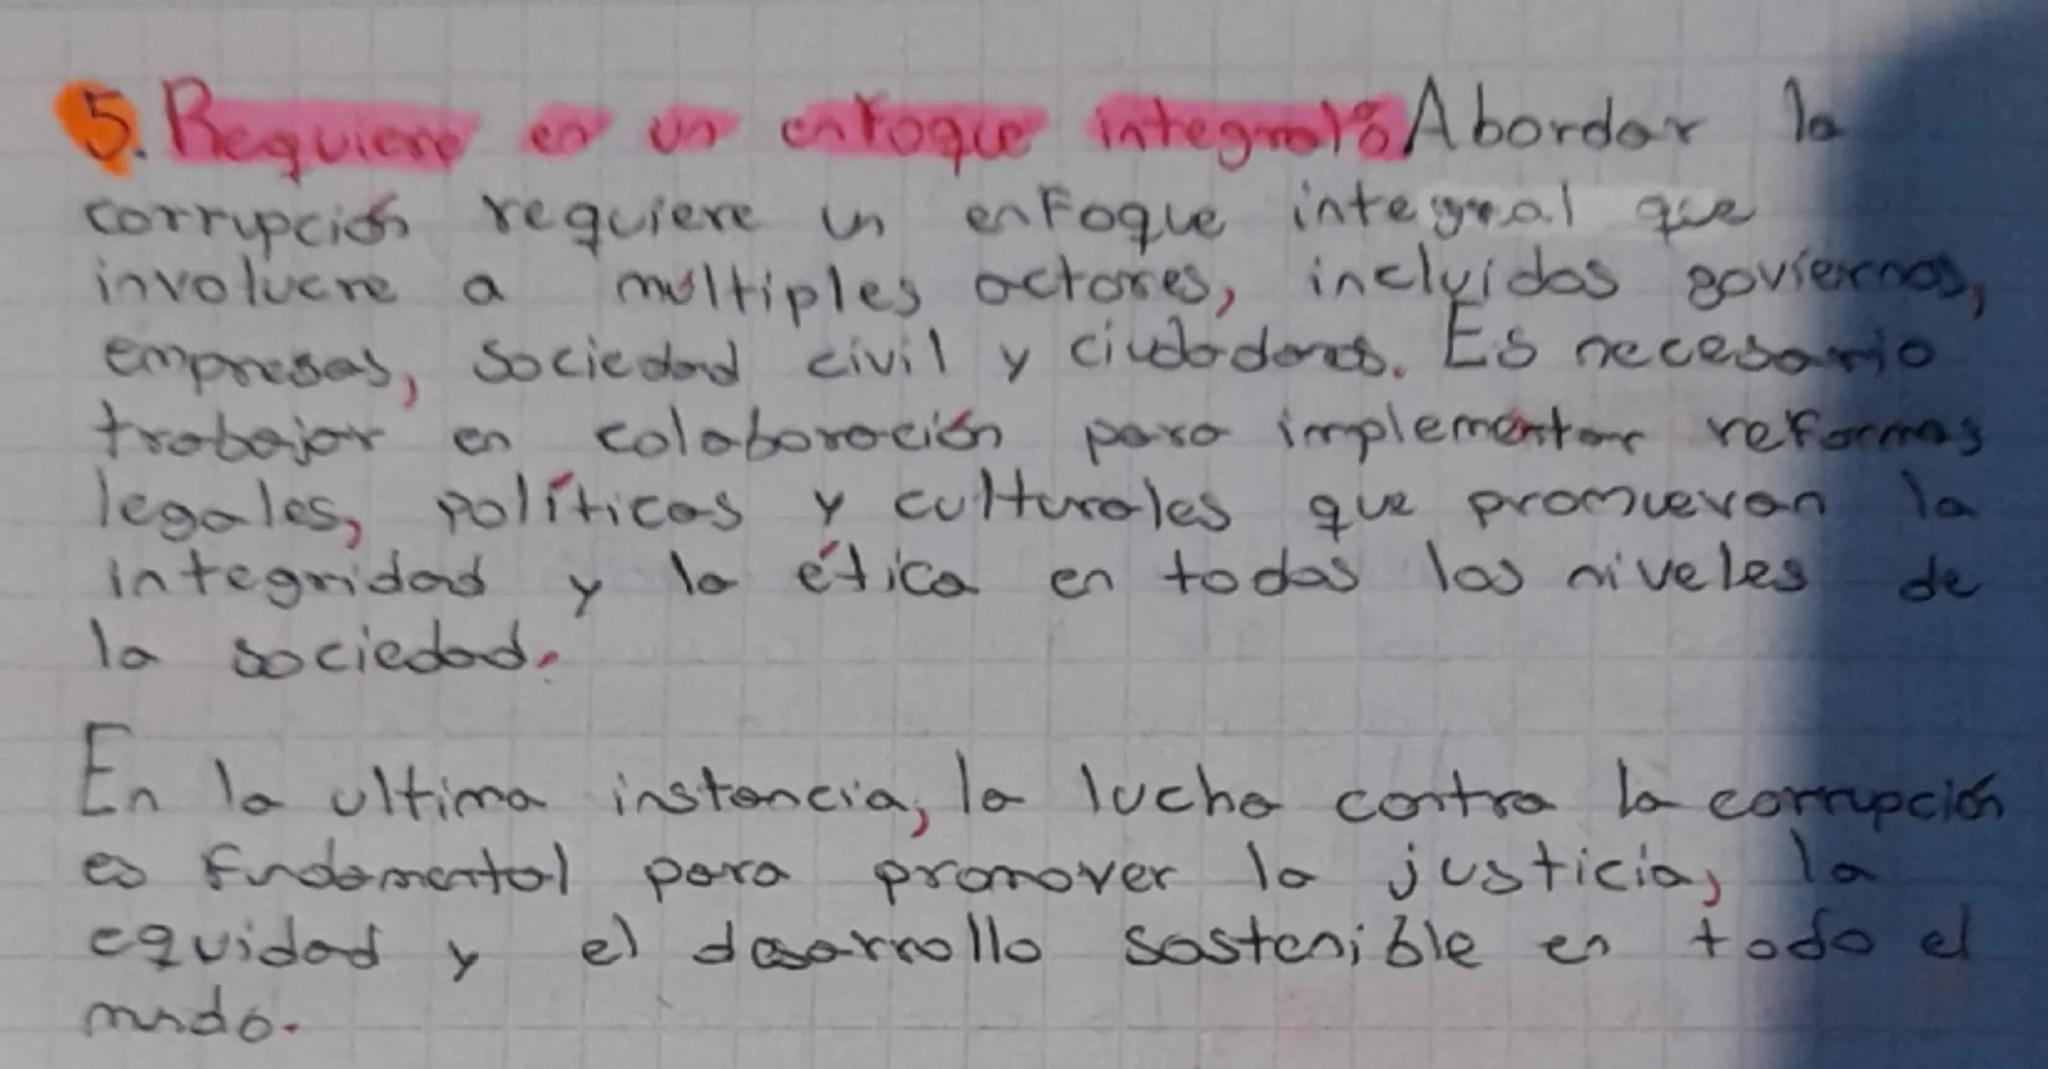 5. Requiere en un enfoque integral: Abordar la
corrupción requiere un enfoque integral que
involucre a multiples actores, incluidos goviernos,
empresas, sociedad civil y ciudadanos. Es necesario
trabajar en colaboración para implementar reformas
legales, políticas y culturales que promuevan la
integridad y la ética en todos los niveles de
la sociedad.
En la ultima instancia, la lucha contra la corrupción
es fundamental para promover la justicia, la
equidad y el desarrollo sostenible en todo el
mundo.